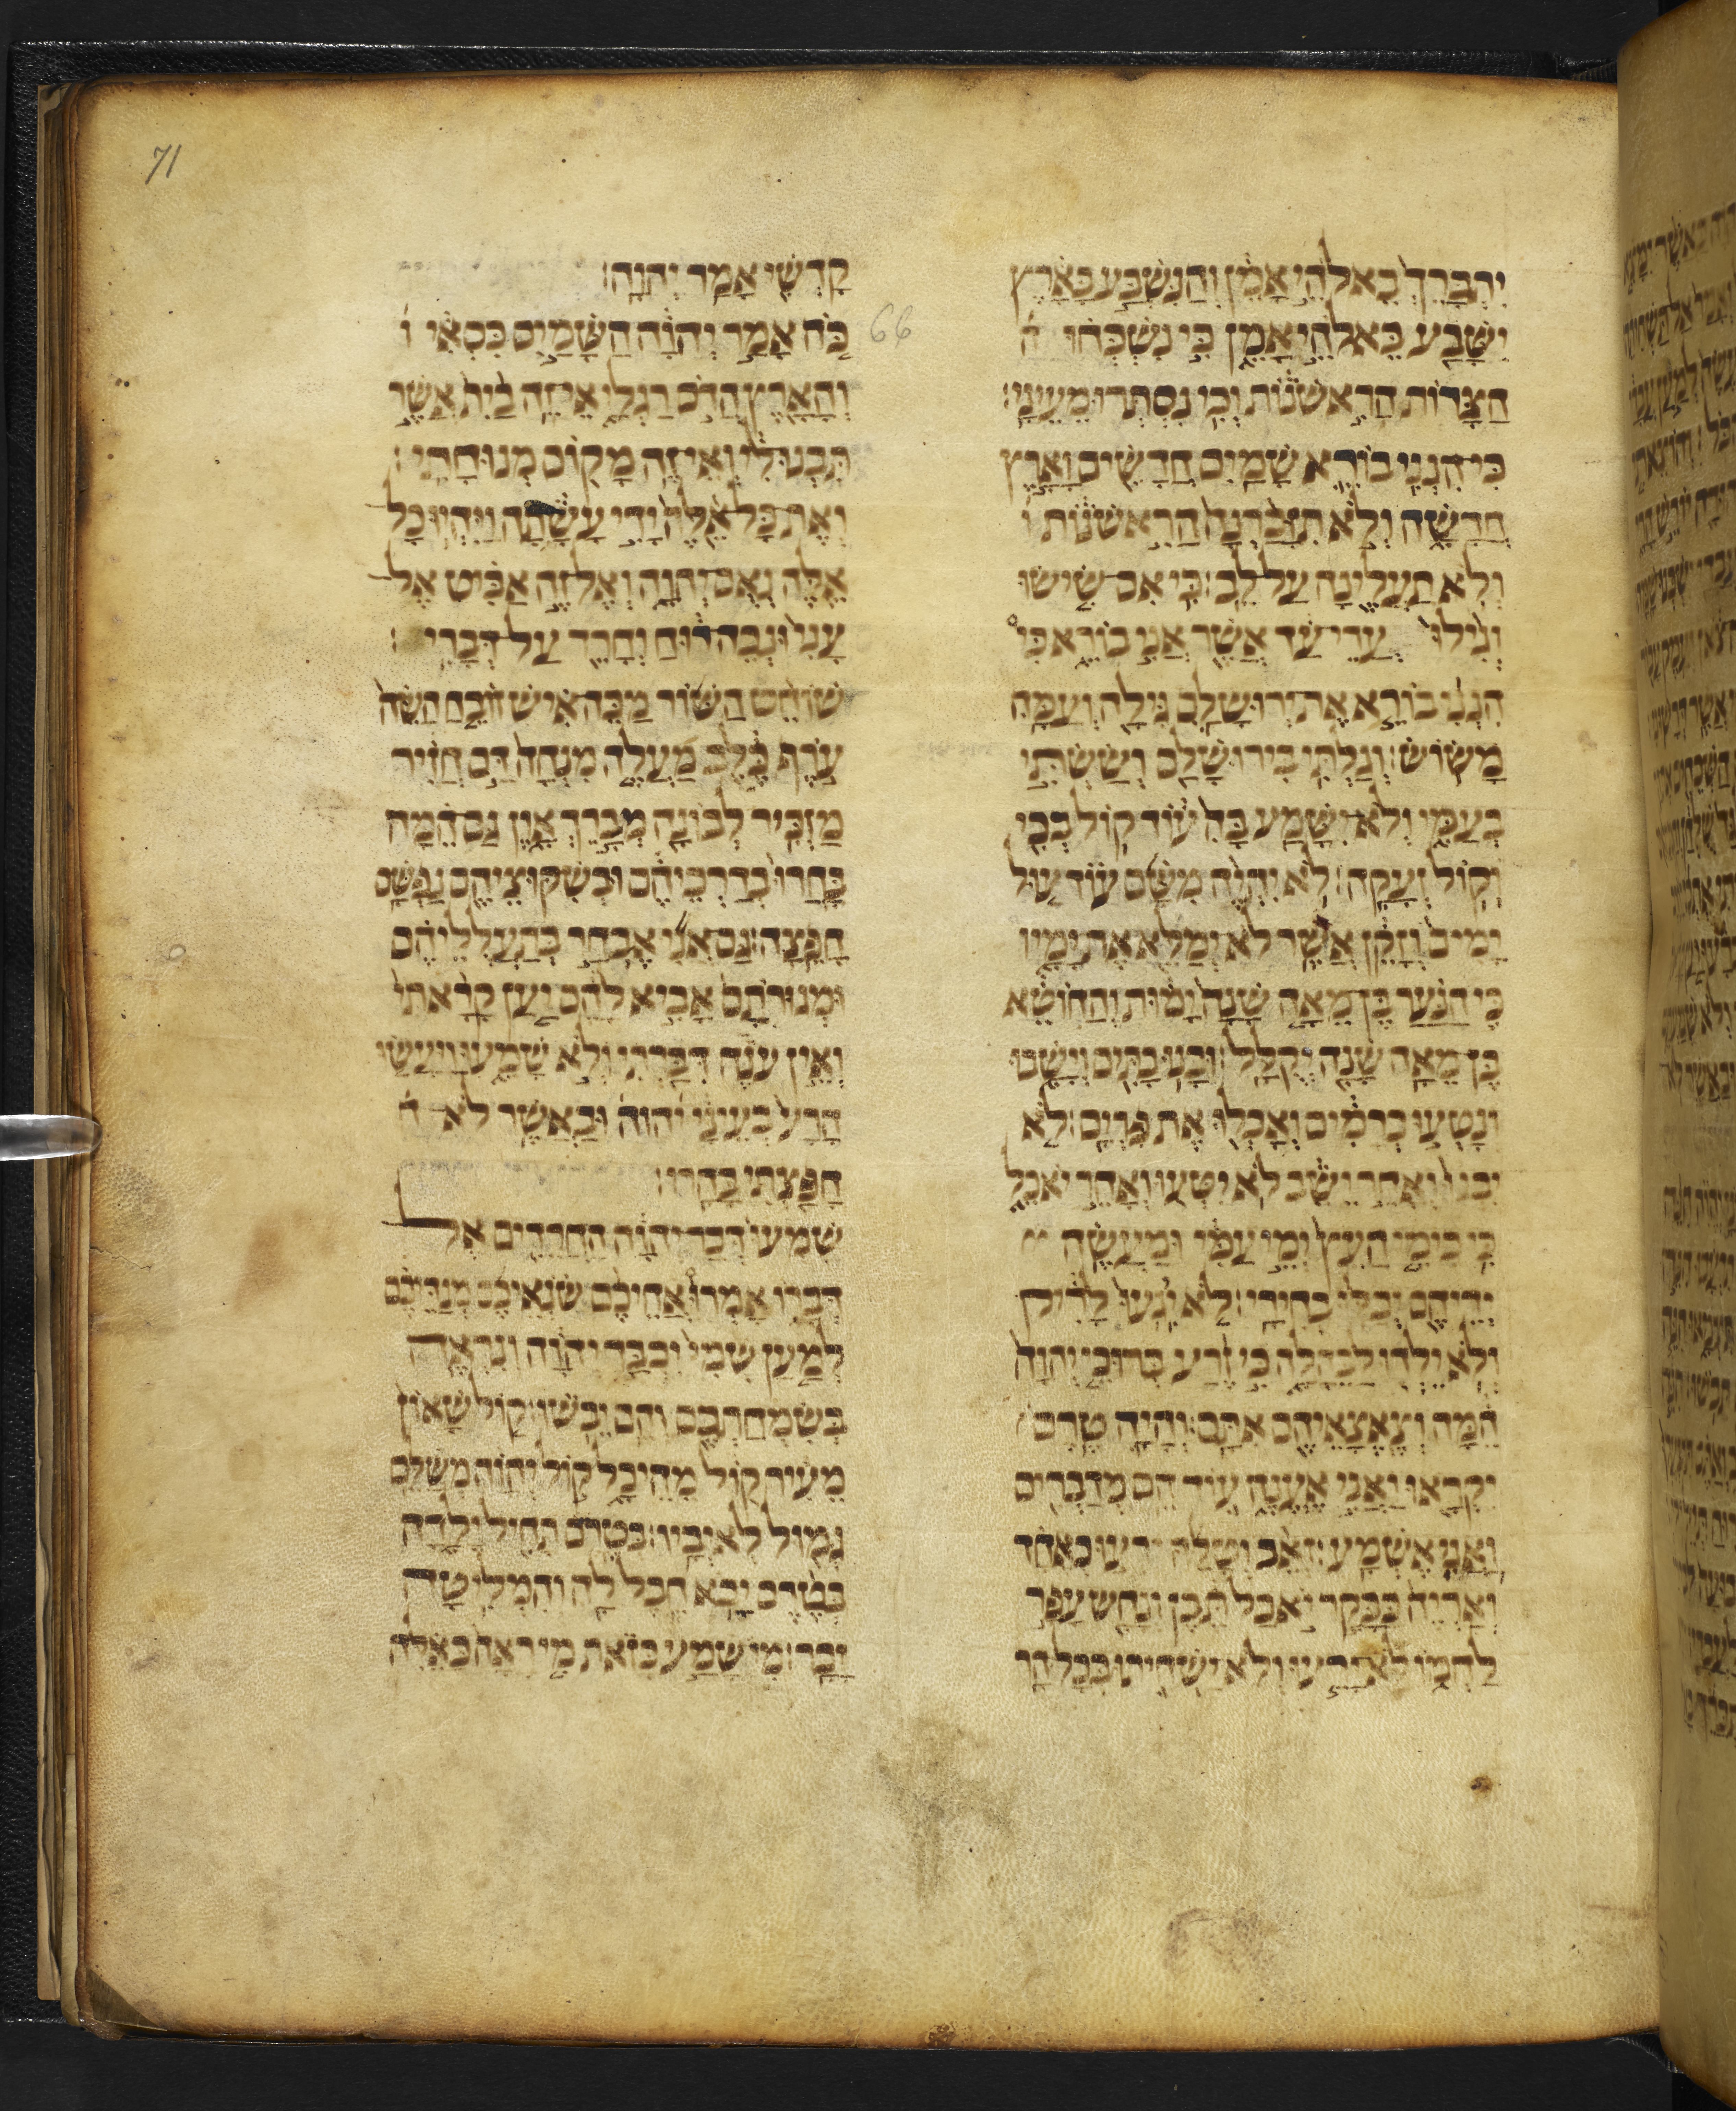 71
יתברך באלהי אמן והנשבע בארץ
ישבע באלהי אמן כי נשכחו ה
הצרות הראשנות וכי נסתרו מעיני׃
כי הנני בורא שמים חדשים וארץ
חדשה ולא תזכרנה הראשנות ו
ולא תעלינה על לב׃ כי אם שישו
וגילו עדי עד אשר אני בורא כי
הנני בורא את ירושלם גילה ועמה
משוש׃ וגלתי בירושלם וששתי
בעמי ולא ישמע בה עוד קול בכי
וקול זעקה׃ לא יהיה משם עוד עול
ימים וזקן אשר לא ימלא את ימיו
כי הנער בן מאה שנה ימות והחוטא
בן מאה שנה יקלל׃ ובנו בתים וישבו
ונטעו כרמים ואכלו את פרים׃ לא
יבנו ואחר ישב לא יטעו ואחר יאכל
כי כימי העץ ימי עמי ומעשה
ידיהם יבלו בחירי׃ לא ייגעו לריק
ולא ילדו לבהלה כי זרע ברוכי יהוה
המה וצאצאיהם אתם׃ והיה טרם
יקראו ואני אענה עוד הם מדברים
ואני אשמע׃ זאב וטלה ירעו כאחד
ואריה כבקר יאכל תבן ונחש עפר
לחמו לא ירעו ולא ישחיתו בכל הר
קדשי אמר יהוה׃
66
כה אמר יהוה השמים כסאי ו
והארץ הדם רגלי אי זה בית אשר
תבנו לי ואי זה מקום מנוחתי׃
ואת כל אלה ידי עשתה ויהיו כל
אלה נאם יהוה ואל זה אביט אל
עני ונכה רוח וחרד על דברי׃
שוחט השור מכה איש זובח השה
ערף כלב מעלה מנחה דם חזיר
מזכיר לבונה מברך און גם המה
בחרו בדרכיהם ובשקוציהם נפשם
חפצה׃ גם אני אבחר בתעלליהם
ומגורתם אביא להם יען קראתי
ואין עונה דברתי ולא שמעו ויעשו
הרע בעיני יהוה ובאשר לא ח
חפצתי בחרו׃
שמעו דבר יהוה החרדים אל
דברו אמרו אחיכם שנאיכם מנדיכם
למען שמי יכבד יהוה ונראה
בשמחתכם והם יבשו׃ קול שאון
מעיר קול מהיכל קול יהוה משלם
גמול לאיביו׃ בטרם תחיל ילדה
בטרם יבא חבל לה והמליטה
זכר׃ מי שמע כזאת מי ראה כאלה